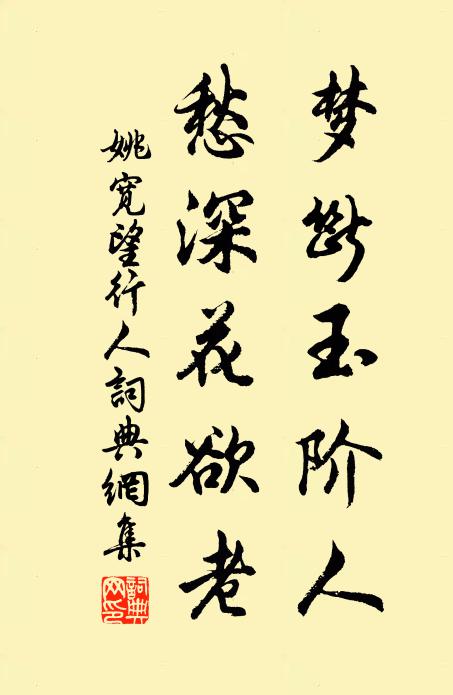 梦断玉阶人
愁深花欲老
姚寛望行人詞典網集
詞典网印